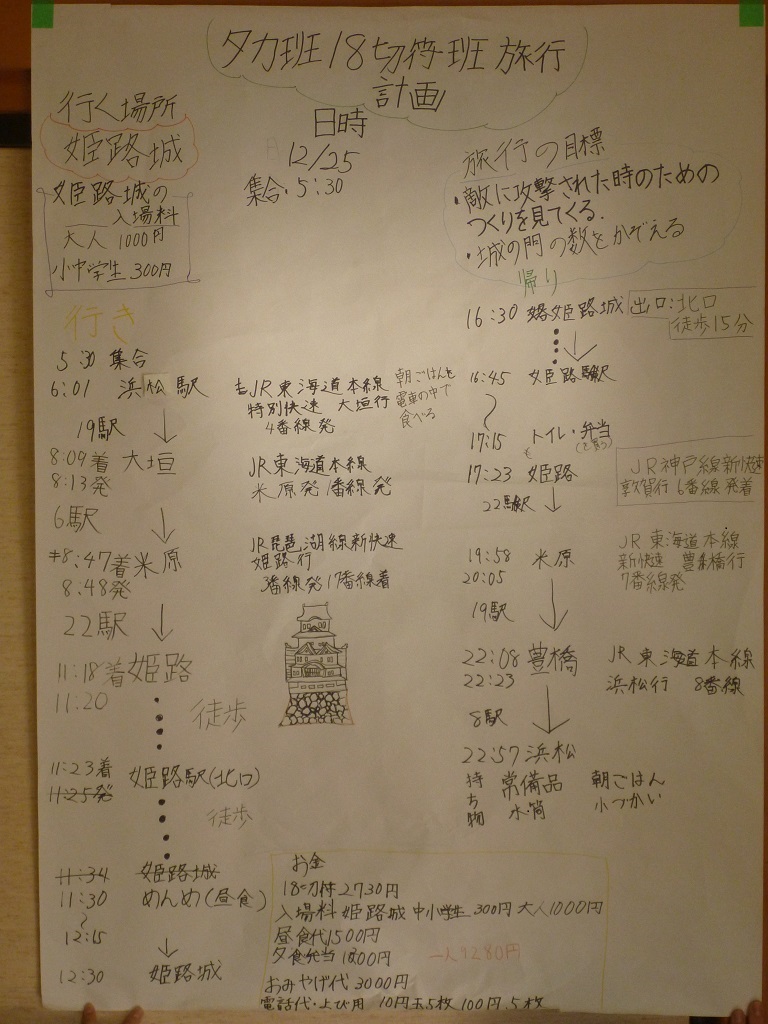 タカ班18切符班 旅行
計画
行く場所
姫路城
姫路城の
入場料
大人 1000円
小中学生 300円
日時
12/25
集合・5:30
旅行の目標
・敵に攻撃された時のための
つくりを見てくる.
・城の門の数をかぞえる
行き
5:30 集合
6:01 浜松駅 JR東海道本線
特別快速 大垣行
4番線発
朝ごはんを
電車の中で
食べる
19駅 ↓
8:09着 大垣 JR東海道本線
8:13発 米原発 1番線発
6駅 ↓
8:47着 米原 JR琵琶湖線新快速
8:48発 姫路行
3番線発 17番線着
22駅 ↓
11:18着 姫路
11:20
徒歩
11:23着 姫路駅(北口)
11:25発
徒歩
11:34 姫路城
11:30 めんめ(昼食)
〜
12:15
↓
12:30 姫路城
帰り
16:30 姫路城 出口:北口
徒歩15分
↓
16:45 姫路駅
〜
17:15 トイレ・弁当
17:23 姫路 JR神戸線新快速
敦賀行 6番線発着
22駅 ↓
19:58 米原 JR東海道本線
20:05 新快速 豊橋行
7番線発
19駅 ↓
22:08 豊橋 JR東海道本線
22:23 浜松行 8番線
8駅 ↓
22:57 浜松
持ち物 常備品 朝ごはん
水筒 小づかい
お金
18切符2730円
入場料 姫路城 中小学生 300円 大人1000円
昼食代1500円
夕食弁当 1000円 一人9280円
おみやげ代 3000円
電話代・よび用 10円玉5枚 100円 5枚